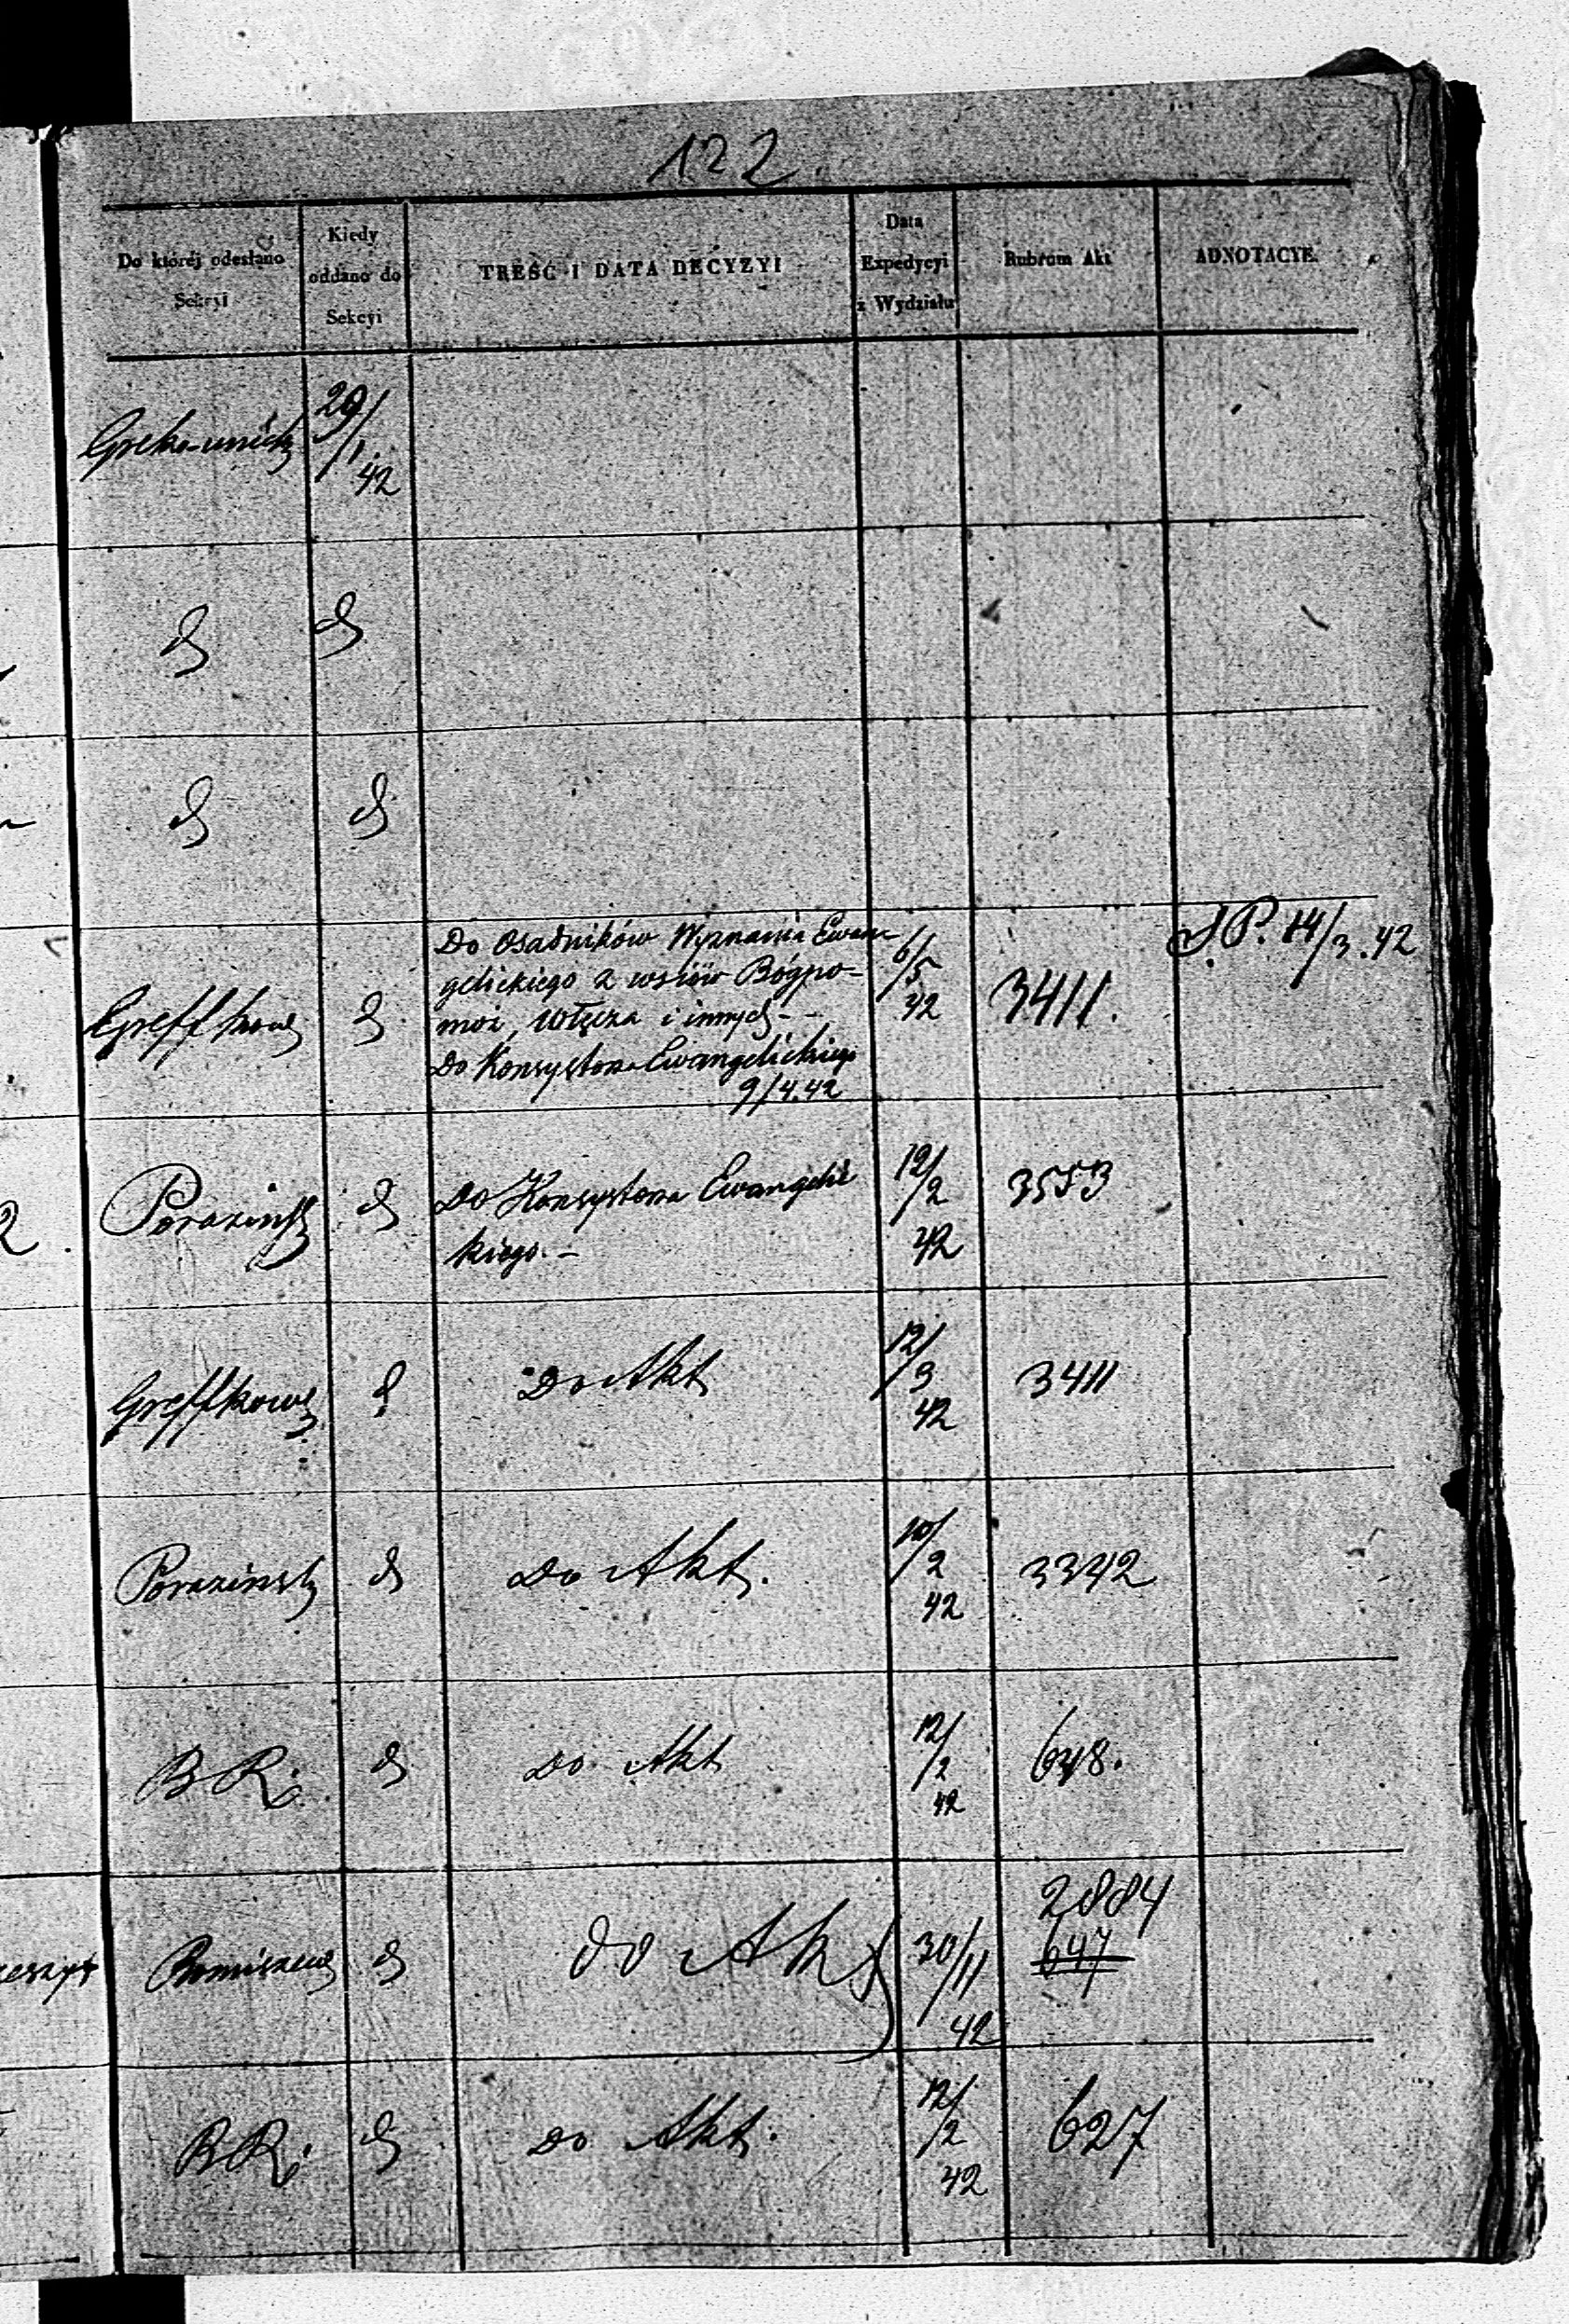 122
Do której odesłano Sekcyi
Kiedy oddano do Sekcyi
TREŚĆ I DATA DECYZYI
Data Expedycyi z Wydziału
Rubrum Akt
ADNOTACYE.
Greko-unick 29/1 42
d d
d d
S.P. 14/3.42
Greffkow d
Do Osadników Wyznania Ewan-
gelickiego z wsiów Bógpo-
moż, Włęcza i innych -
Do Konsystorza Ewangelickiego
9/4.42
6/5 42
3411.
Porazińsk d
Do Konsystorza Ewangelic
kiego. -
12/2 42
3553
Greffkow d Do Akt 12/3 42 3411
Porazińsk d Do Akt. 10/2 42 3342
B R. d Do Akt 12/2 42 648.
d do Akt 30/11 42 2884
647
B R. d Do Akt. 12/2 42 627